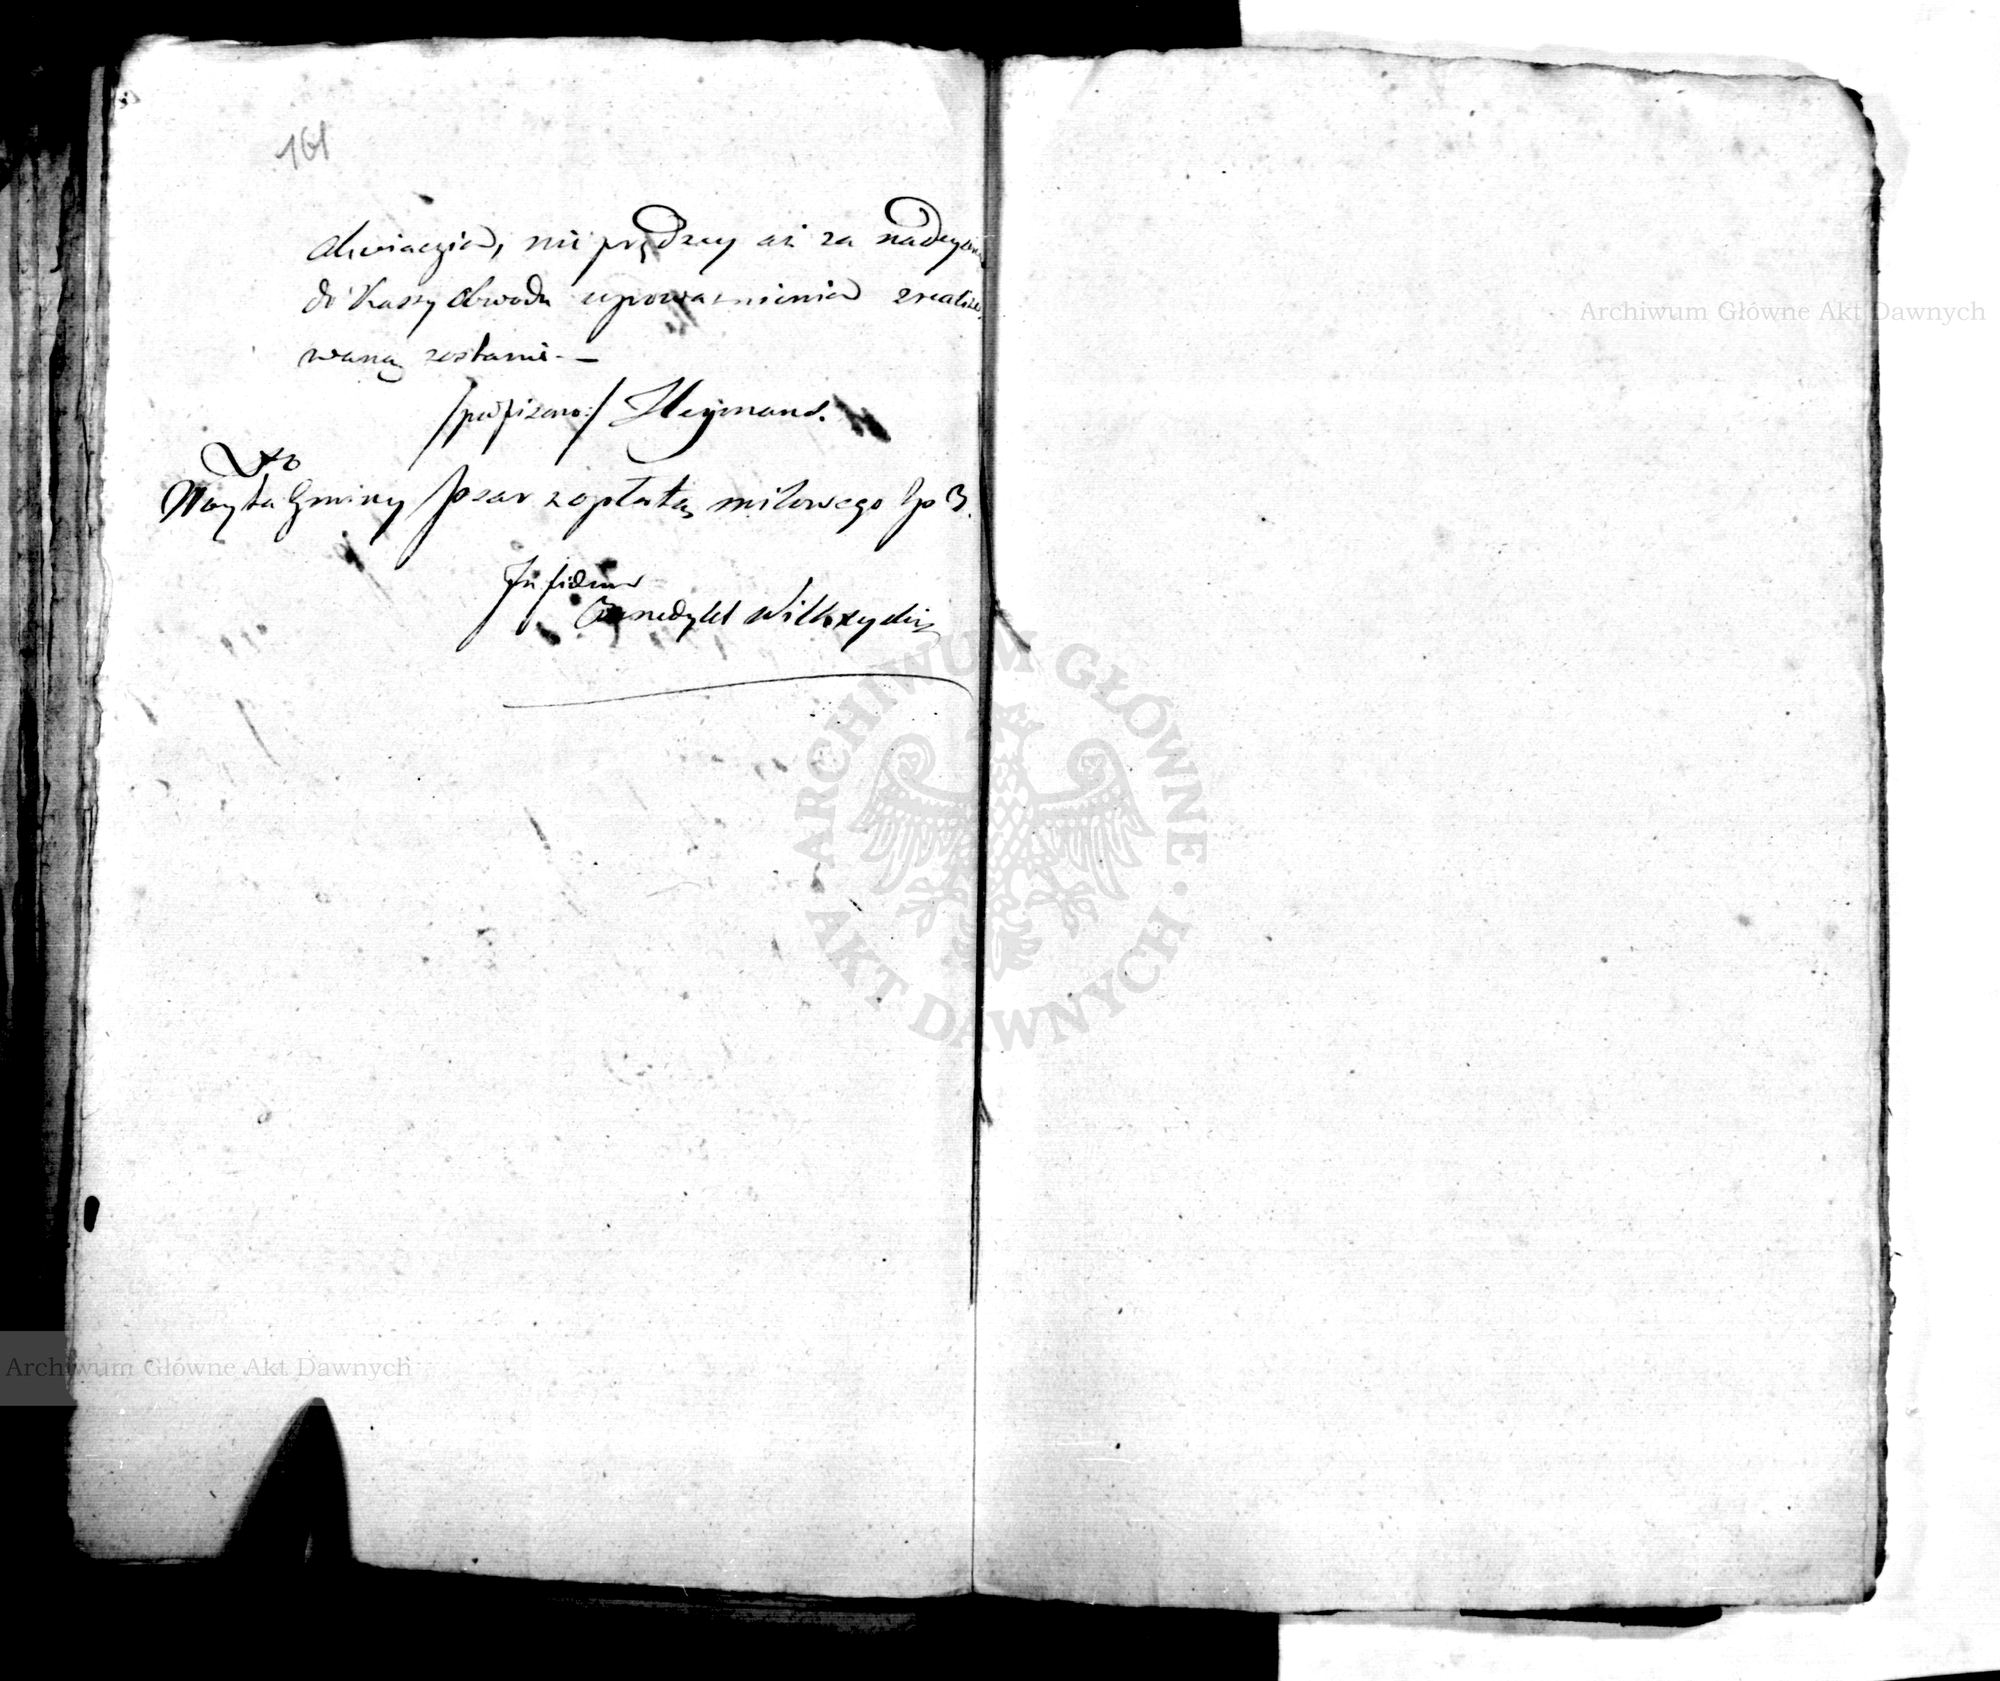 161
nie prędzey aż za nadeyściem
do Kassy Obwodu upoważnienia zrealizo-
waną zostanie. —
/podpisano:/ Heymans.
Do
Woyta Gminy za opłatą milowego
In fidem
Benedykt
Archiwum Główne Akt Dawnych
ARCHIWUM GŁÓWNE AKT DAWNYCH
Archiwum Główne Akt Dawnych